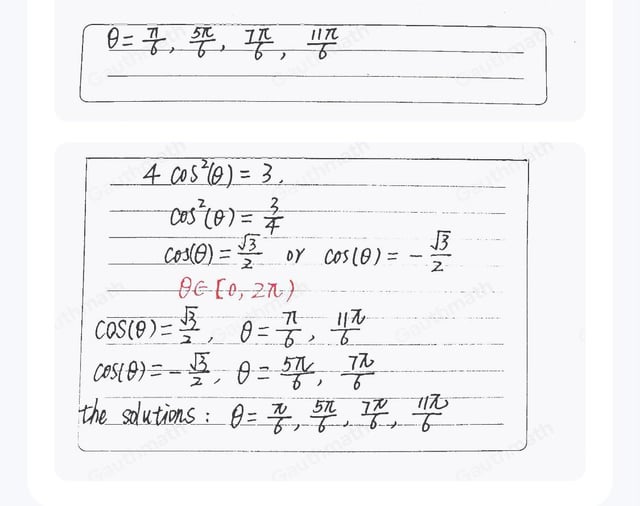 θ = π/6, 5π/6, 7π/6, 11π/6
4 cos²(θ) = 3.
cos²(θ) = 3/4
cos(θ) = √3/2 or cos(θ) = - √3/2
θ∈ [0, 2π)
cos(θ) = √3/2, θ = π/6, 11π/6
cos(θ) = - √3/2, θ = 5π/6, 7π/6
the solutions : θ = π/6, 5π/6, 7π/6, 11π/6